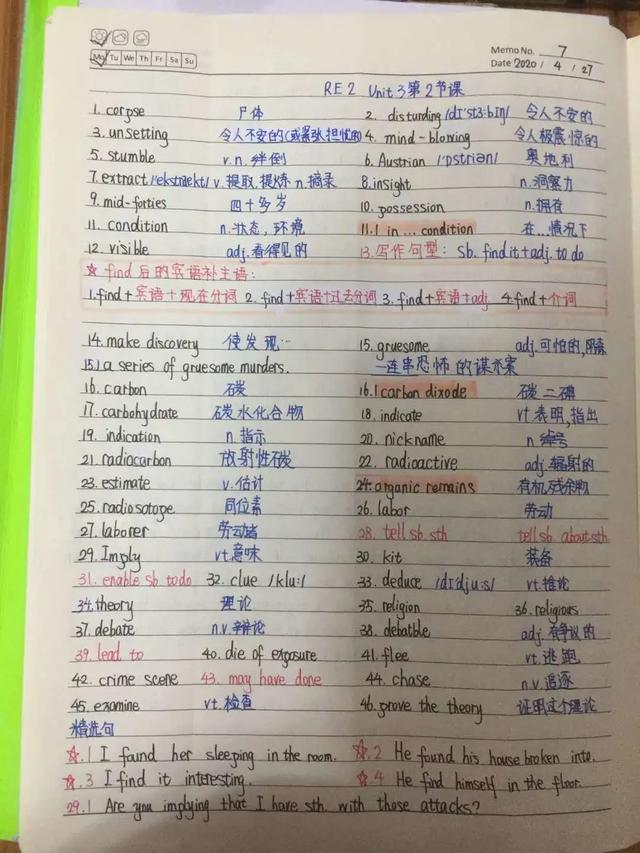 Memo No. 7
Mo Tu We Th Fr Sa Su
Date 2020 / 4 / 27
RE2 Unit 3 第2节课
1. corpse 尸体 2. disturding /dɪ'stɜ:bɪŋ/ 令人不安的
3. unsetting 令人不安的(或紧张担忧的) 4. mind-blowing 令人极震惊的
5. stumble v.n. 绊倒 6. Austrian /'ɒstriən/ 奥地利
7. extract /'ekstrækt/ v. 提取,提炼 n.摘录 8. insight n.洞察力
9. mid-forties 四十多岁 10. possession n.拥有
11. condition n.状态,环境 11.1 in ... condition 在...情况下
12. visible adj.看得见的 13.写作句型: sb. find it+adj. to do
☆ find 后的宾语补主语:
1.find+宾语+现在分词 2. find+宾语+过去分词 3. find+宾语+adj 4.find+介词
14. make discovery 使发现… 15. gruesome adj.可怕的,阴森
15.1 a series of gruesome murders. 一连串恐怖的谋杀案
16. carbon 碳 16.1 carbon dixode 碳二磷
17. carbohydrate 碳水化合物 18. indicate vt.表明,指出
19. indication n.指示 20. nickname n.绰号
21. radiocarbon 放射性碳 22. radioactive adj.辐射的
23. estimate v.估计 24. organic remains 有机残余物
25. radiosotope 同位素 26. labor 劳动
27. laborer 劳动者 28. tell sb. sth tell sb. about sth
29. Imply vt.意味 30. kit 装备
31. enable sb to do 32. clue /klu:/ 33. deduce /dɪdju:s/ vt.推论
34. theory 理论 35. religion 36. religious
37. debate n.v.辩论 38. debatble adj.有争议的
39. lead to 40. die of exposure 41. flee vt.逃跑
42. crime scene 43. may have done 44. chase n.v.追逐
45. examine vt.检查 46. prove the theory 证明这个理论
精选句
☆.1 I found her sleeping in the room. ☆.2 He found his house broken into.
☆.3 I find it interesting. ☆.4 He find himself in the floor.
29.1 Are you implying that I have sth. with those attacks?